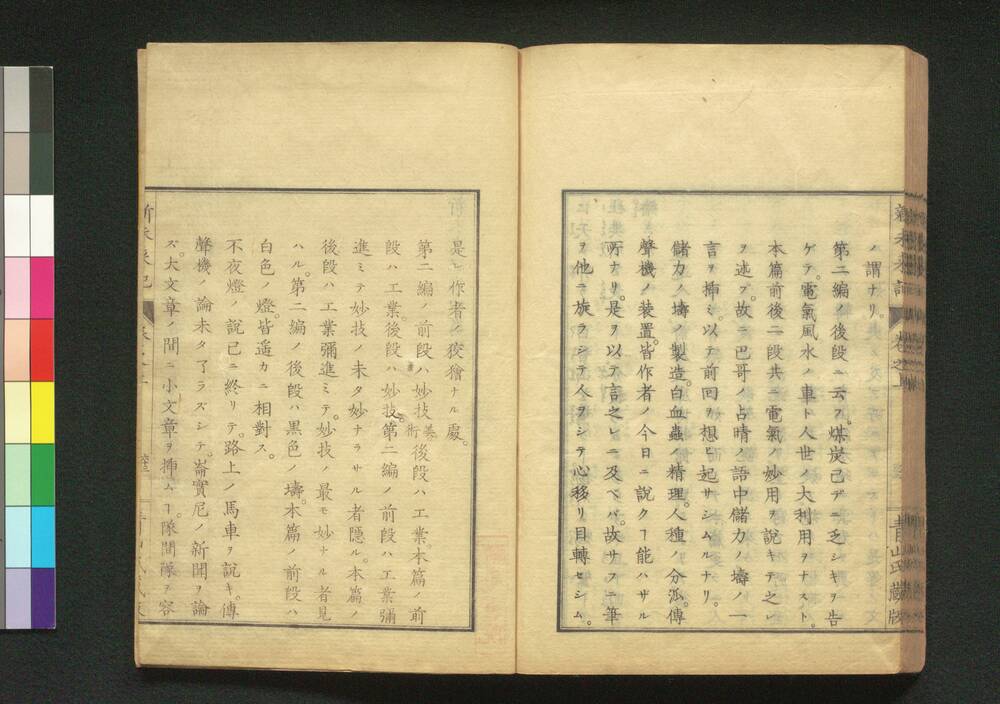 新未來記
卷之上
青山氏藏版
ノ謂ナリ。
第二編ノ後段ニ云フ。煤炭己デニ乏シキヲ告
ゲテ。電氣風水ノ車ト人世ノ大利用ヲナスト。
本篇前後二段共ニ電氣ノ妙用ヲ說キテ之レ
ヲ述ブ。故ニ巴哥ノ占晴ノ語中儲力ノ壔ノ一
言ヲ揷ミ。以テ前回ヲ想ヒ起サシムルナリ。
儲力ノ壔ノ製造。白血蟲ノ精理。人種ノ分派。傳
聲機ノ裝置。皆作者ノ今日ニ說クヿ能ハザル
所ナリ。是ヲ以テ言之レニ及べバ。故サラニ筆
ヲ他ニ旋ラシテ人ヲシテ心移リ目轉セシム。
是レ作者ノ狡獪ナル處。
第二編ノ前段ハ妙技美術後段ハ工業。本篇ノ前
段ハ工業。後段ハ妙技。第二編ノ前段ハ工業彌
進ミテ妙技ノ未タ妙ナラサル者隱ル。本篇ノ
後段ハ工業彌進ミテ。妙技ノ最モ妙ナル者見
ハル。第二編ノ後段ハ黑色ノ壔。本篇ノ前段ハ
白色ノ燈。皆遥カニ相對ス。
不夜燈ノ說已ニ終リテ。路上ノ馬車ヲ說キ。傳
聲機ノ論未タ了ラズシテ。崙實尼ノ新聞ヲ論
ズ。大文章ノ間ニ小文章ヲ揷ムヿ。隊間隊ヲ容
新未來記